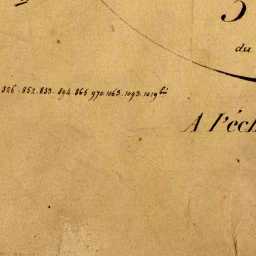 3
du
826. 852. 853. 894. 865 970. 1063. 1093. 1019 bis
A l'éch